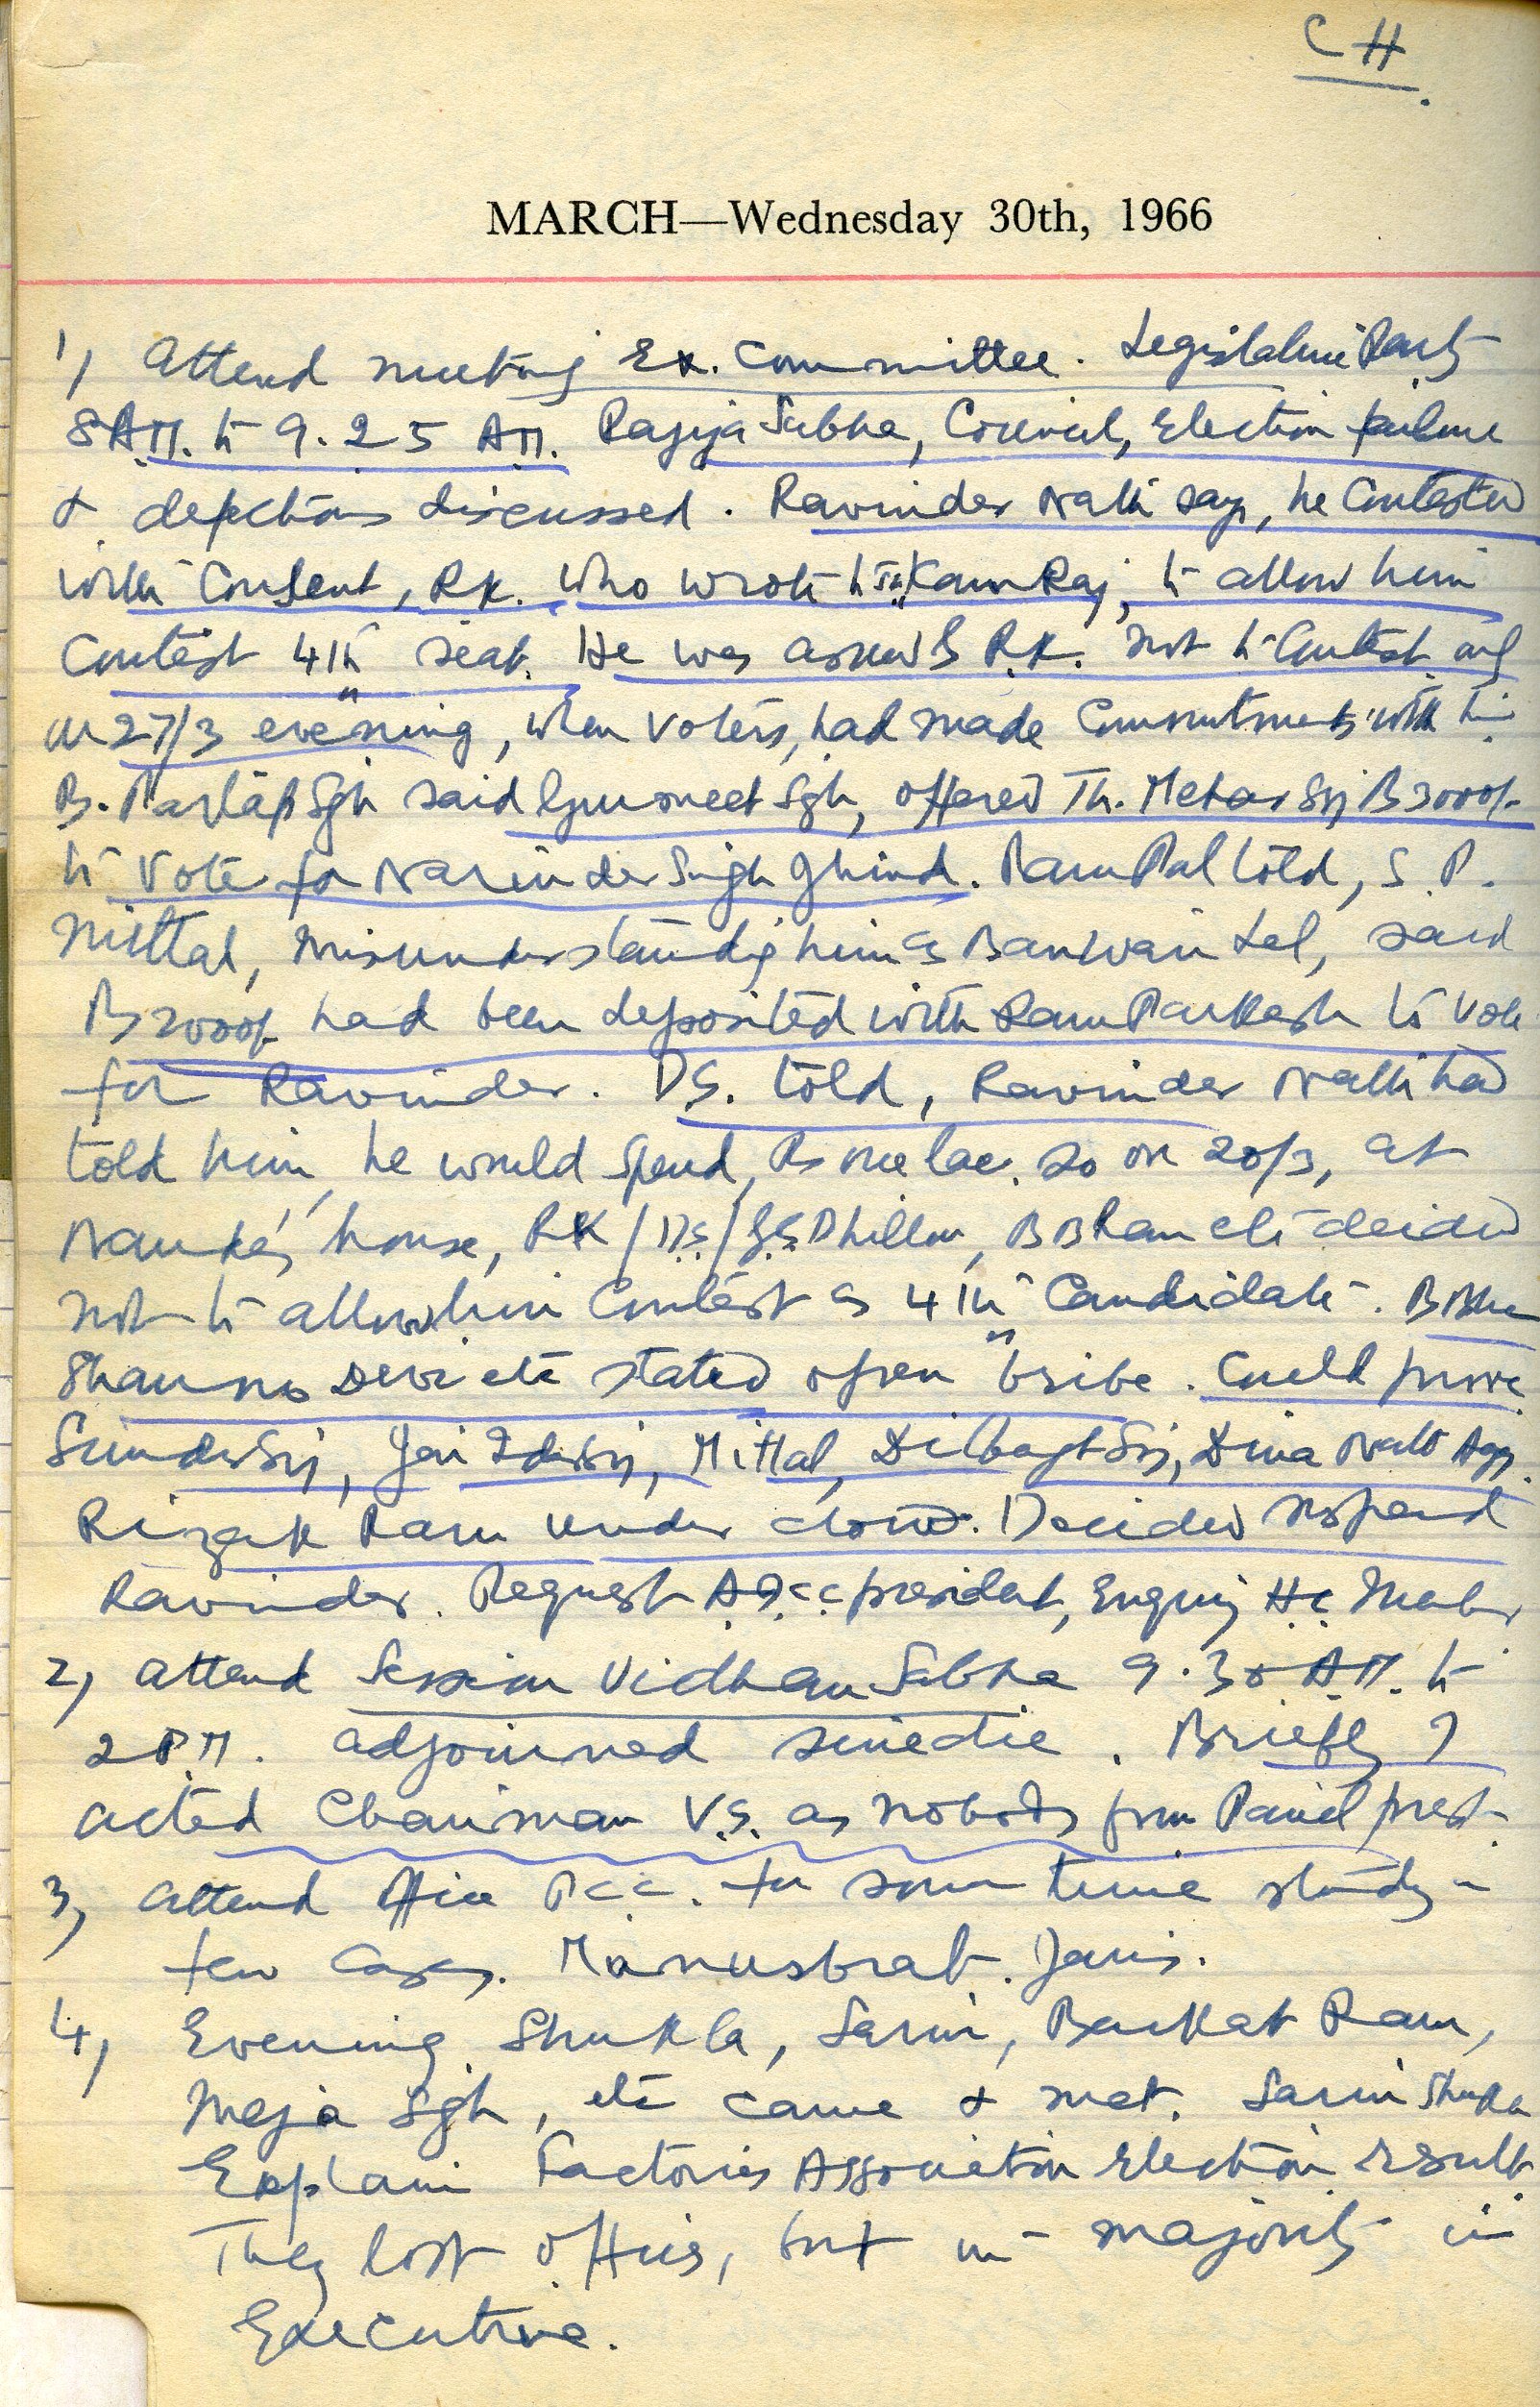 CH.
MARCH—Wednesday 30th, 1966
1) Attend meeting Ex. Committee. Legislature Party
8 AM. to 9.25 AM. Rajya Sabha, Council, Election failure
& defections discussed. Ravinder Nath says, he contested
with consent, RK. who wrote to Kam Raj, to allow him
contest 4th seat. He was asked by R.K. not to contest only
on 27/3 evening, when voters, had made commitments with him
B. Partap Sgh said Gurmeet Sgh, offered Th. Mehar Sgh Rs 3000/-
to vote for Narinder Singh Jhind. Ram Pal told, S. P.
Mittal, misunderstanding him as Banwari Lal, said
Rs 2000/- had been deposited with Ram Parkash to vote
for Ravinder. DS. told, Ravinder Nath had
told him, he would spend, Rs one lac. so on 20/3, at
house, RK/DS/GS Dhillon, decided
not to allow him contest as 4th candidate.
Shanno Devi etc stated open bribe. Could prove
Sunder Sgh, Jai Inder Sgh, Mittal, Dilbagh Sgh, Dina Nath Agg.
Rizak Ram under cloud. Decided suspend
Ravinder. Request AICC president, Enquiry
2) Attend Session Vidhan Sabha 9.30 AM. to
2 PM. adjourned sinedie. Briefly I
acted Chairman V.S. as nobody from Panel prest.
3) Attend office PCC. for some time study
few cases.
4) Evening Shukla, Sarin, Barkat Ram,
Meja Sgh, etc came & met. Sarin Shukla
Explain Factories Association Election result
They lost offices, but in majority in
Executive.